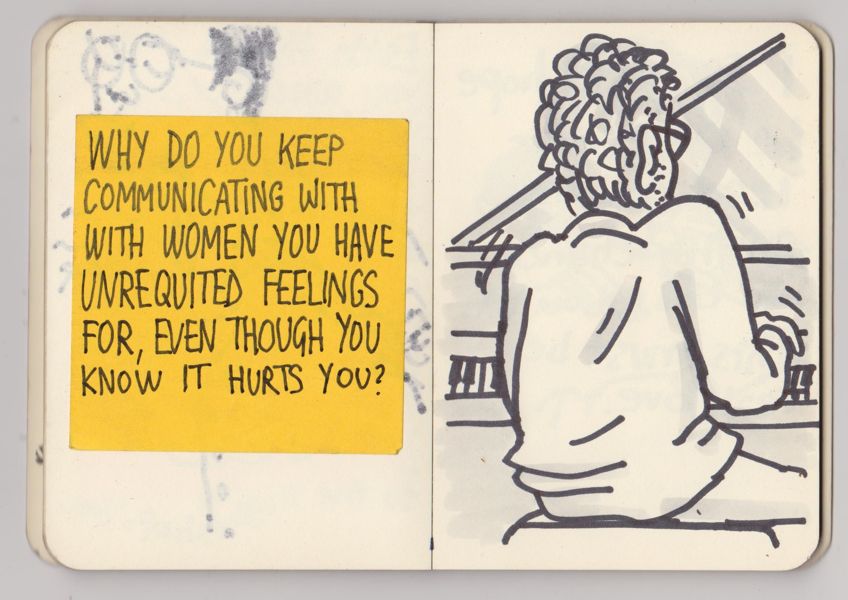 WHY DO YOU KEEP
COMMUNICATING WITH
WITH WOMEN YOU HAVE
UNREQUITED FEELINGS
FOR, EVEN THOUGH YOU
KNOW IT HURTS YOU?